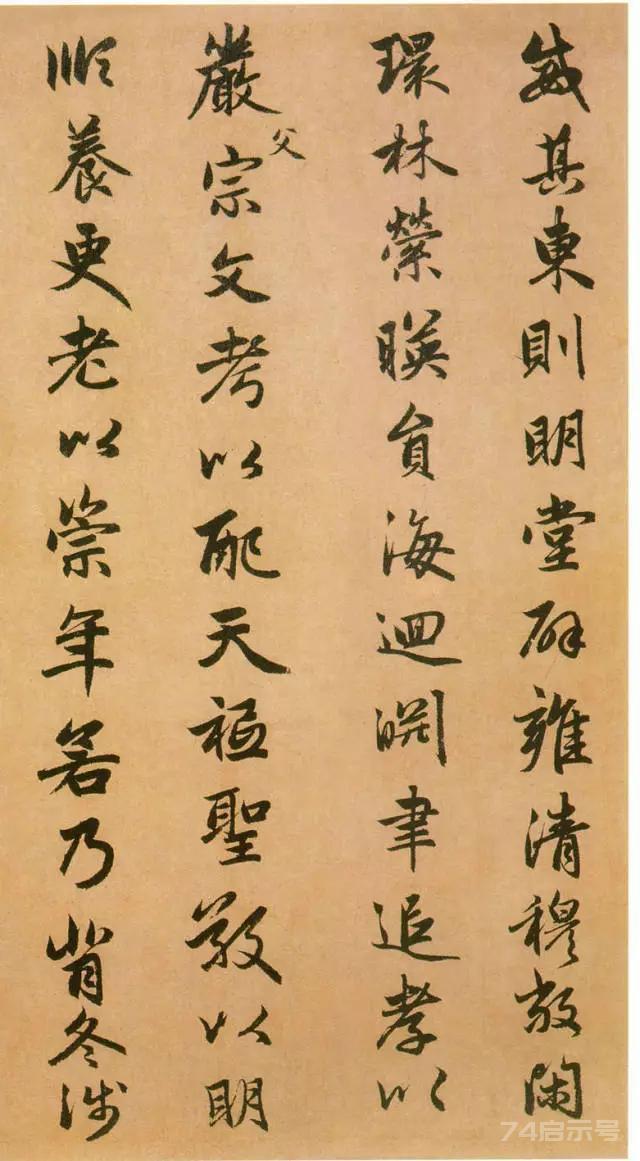 威其東則明堂辟雍清穆敞閑
環林縈暎員海迴淵聿追孝以
嚴父宗文考以配天祗聖敬以明
順養更老以崇年若乃背冬涉
74启示号